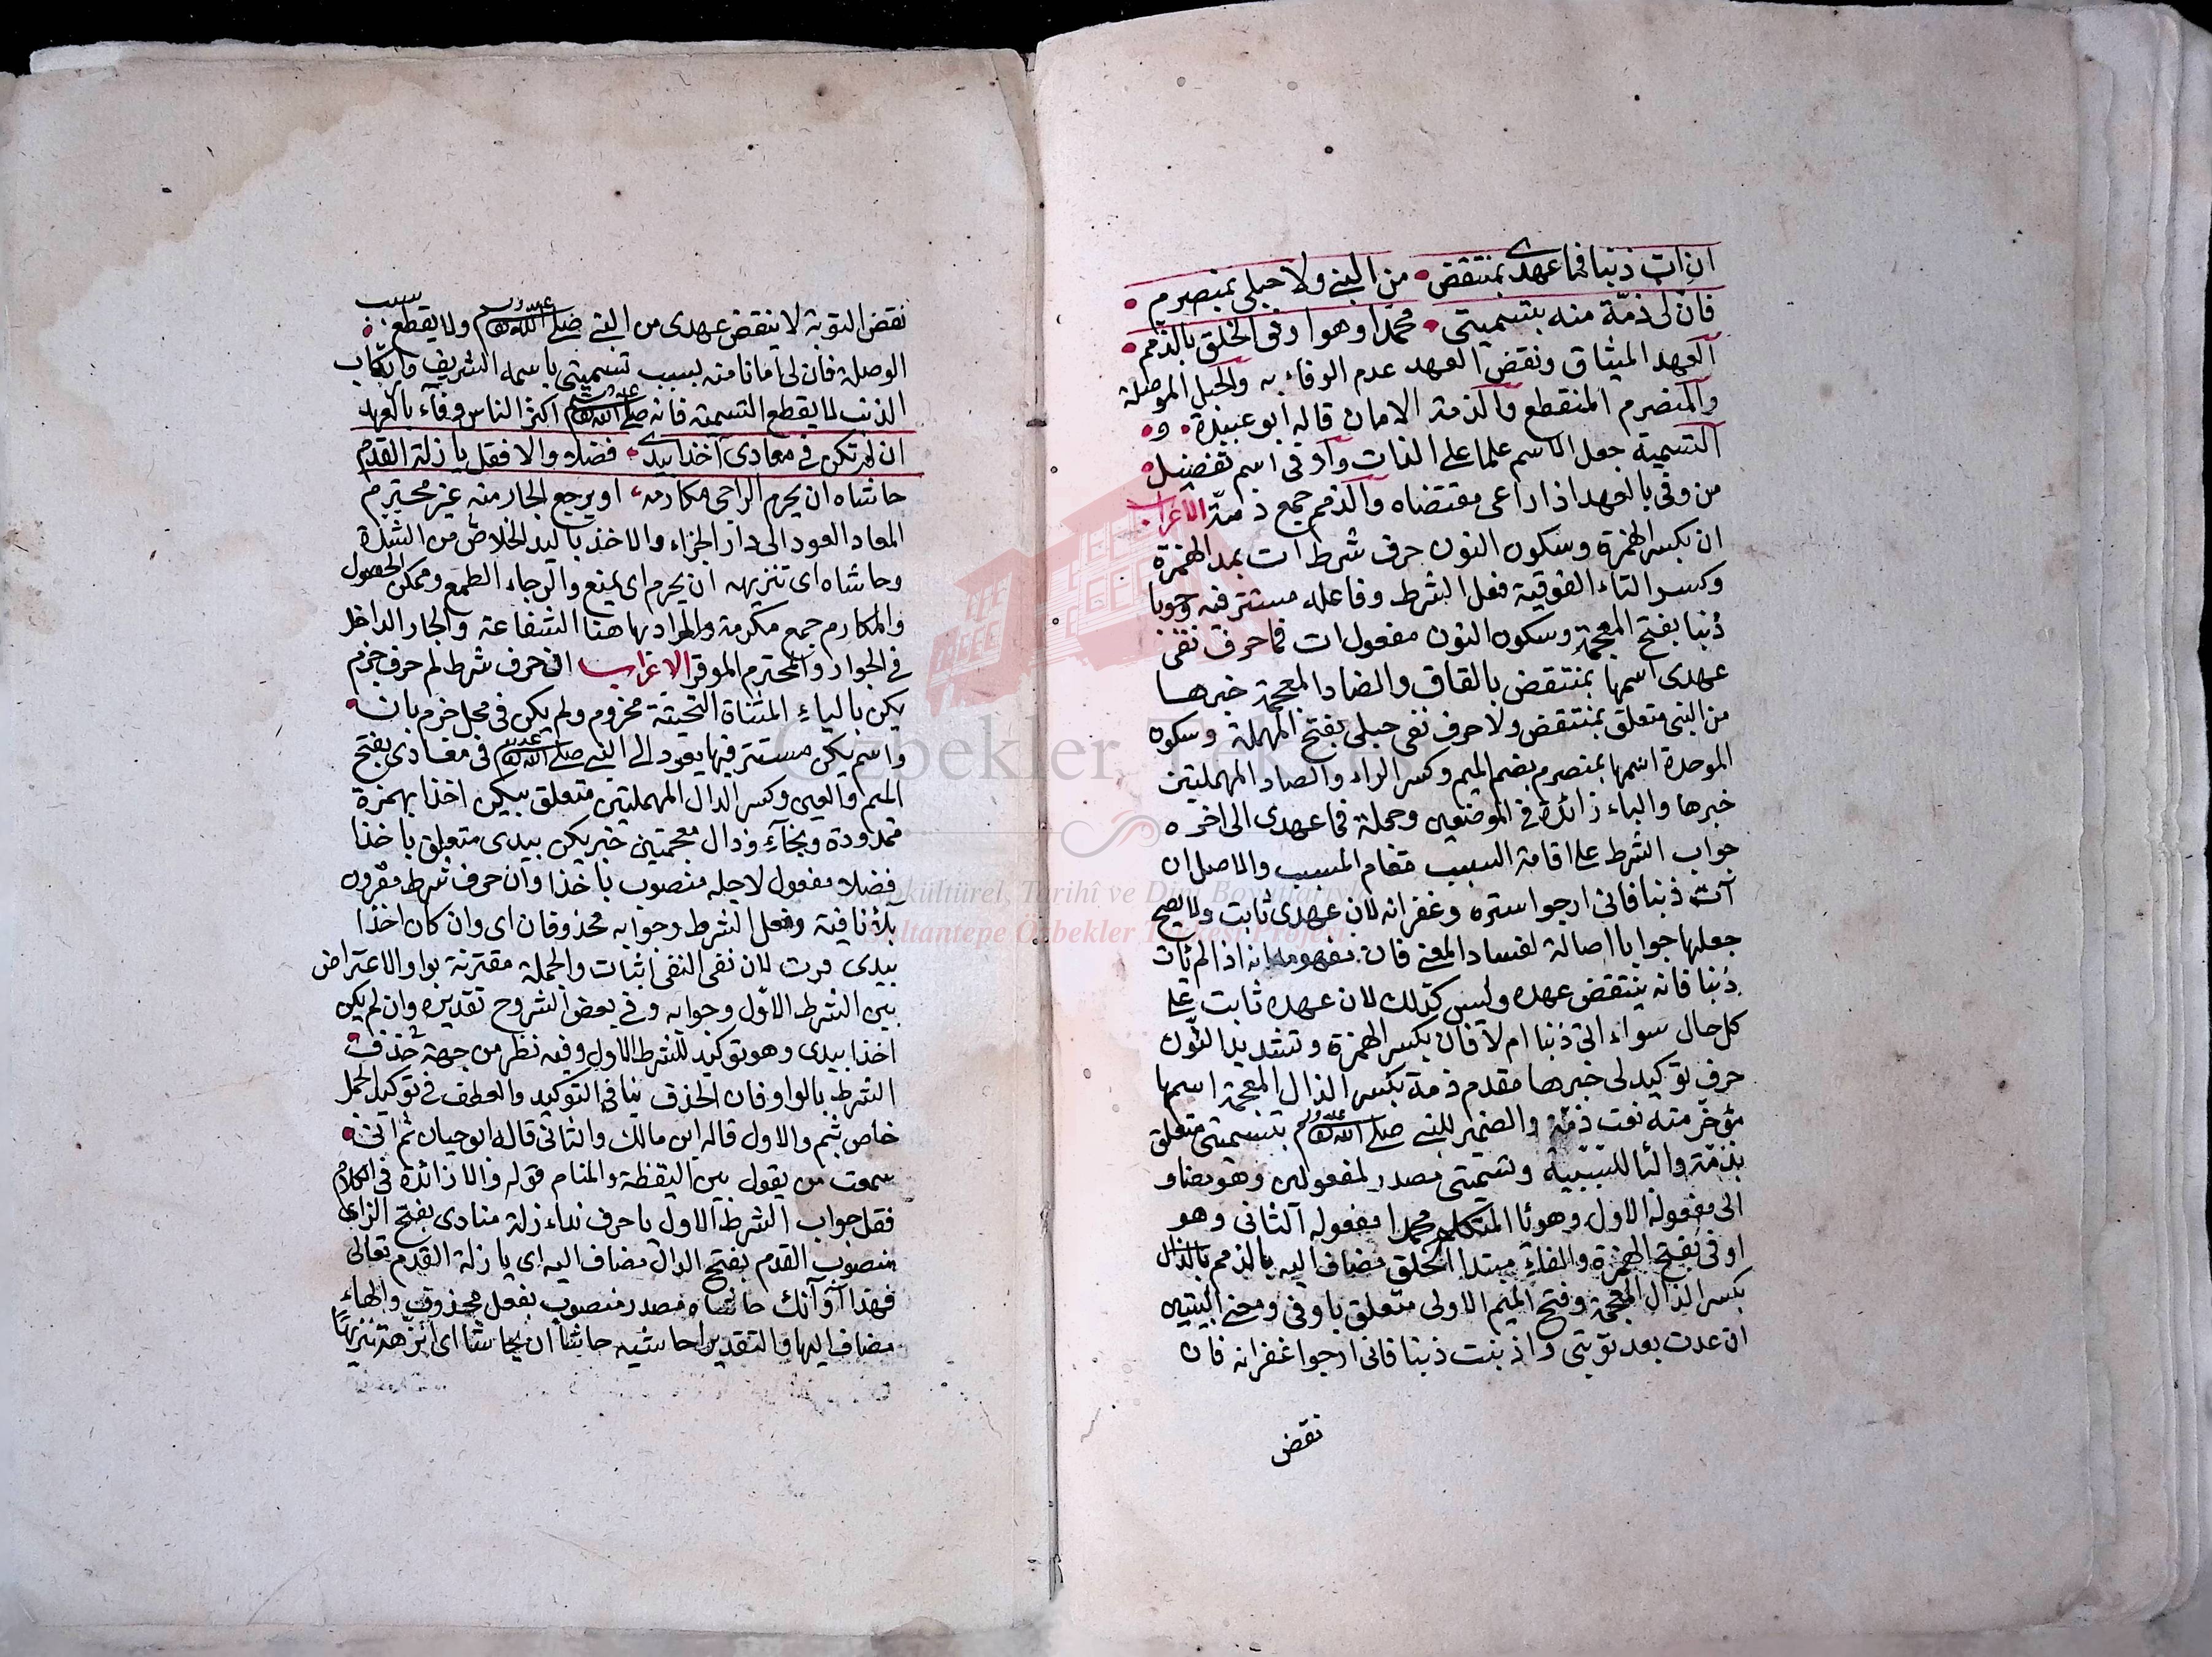 ان ات ذنبا فما عهدي بمنتقض من النبي ولا حبلي بمنصرم
فان لى ذمّة منه بتسميتى محمّدا وهو اوفى الخلق بالذمم
العهد الميثاق ونقض العهد عدم الوفاء به والحبل الموصلة
والمنصرم المنقطع والذمة الامان قاله ابو عبيدة و
التسمية جعل الاسم علما على الذات واوفى اسم تفضيل
من وفى بالعهد اذا راعى مقتضاه والذمم جمع ذمّة الاعراب
ان بكسر الهمزة وسكون النون حرف شرط ات بمد الهمزة
وكسر التاء الفوقية فعل الشرط وفاعله مستتر فيه وجوبا
ذنبا بفتح المعجمة وسكون النون مفعول ات فما حرف نفى
عهدى اسمها بمنتقض بالقاف والضاد المعجمة خبرها
من النبى متعلق بمنتقض ولا حرف نفى حبلى بفتح المهملة وسكون
الموحدة اسمها بمنصرم بضم الميم وكسر الراء والصاد المهملتين
خبرها والباء زائدة فى الموضعين وجملة فما عهدى الى اخره
جواب الشرط على اقامة السبب مقام المسبب والاصل ان
آت ذنبا فانى ارجو ستره وغفرانه لان عهدى ثابت ولا يصح
جعلها جوابا اصالة لفساد المعنى فان مفهومه انه اذا لم يات
ذنبا فانه ينتقض عهده وليس كذلك لان عهده ثابت على
كل حال سواء اتى ذنبا ام لا فان بكسر الهمزة وتشديد النون
حرف توكيد لى خبرها مقدم ذمة بكسر الذال المعجمة اسمها
مؤخر منه نعت ذمة والضمير للنبى صلى الله عليه وسلم بتسميتى متعلق
بذمة والبا للسببية وتسميتى مصدر لمفعولين وهو مضاف
الى مفعوله الاول وهو يا المتكلم محمدا مفعوله الثانى وهو
اوفى بفتح الهمزة والفاء مبتدا الخلق مضاف اليه بالذمم بالذال
بكسر الذال المعجمة وفتح الميم الاولى متعلق باوفى ومعنى البيتين
ان عدت بعد توبتى واذنبت ذنبا فانى ارجوا غفرانه فان
نقض
نقض التوبة لا ينقض عهدى من النبى صلى الله عليه وسلم ولا يقطع سبب
الوصلة فان لى امانا منه بسبب تسميتى باسمه الشريف وارتكاب
الذنب لما يقطع التسمية فانه صلى الله عليه وسلم اكثر الناس وفآء بالعهد
ان لم تكن فى معادى آخذا بيدى فضلا والا فقل يا زلة القدم
حاشاه ان يحرم الراجى مكارمه او يرجع الجار منه غير محترم
المعاد العود الى دار الجزاء والاخذ باليد الخلاص من الشدة
وحاشاه اى تنزيهه ان يحرم اى يمنع والرجاء الطمع وممكن الحصول
والمكارم جمع مكرمة والمراد بها هنا الشفاعة والجار الداخل
فى الجوار والمحترم الموقر الاعراب ان حرف شرط لم حرف جزم
يكن بالياء المثناة التحية مجزوم ولم يكن فى محل جزم بان
واسم يكن مستتر فيها يعود الى النبى صلى الله عليه وسلم فى معادى بفتح
الميم والعين وكسر الدال المهملتين متعلق بيكن اخذا بهمزة
ممدودة وبخآء وذال معجمتين خبر يكن بيدى متعلق باخذا
فضلا مفعول لاجله منصوب باخذا وان حرف شرط مقرون
بلا نافية وفعل الشرط وجوابه محذوفان اى وان كان اخذا
بيدى مرت لان نفى النفى اثبات والجملة مقترنة بواو الاعتراض
بين الشرط الاوّل وجوابه وفى بعض الشروح تقديره وان لم يكن
اخذا بيدى وهو توكيد للشرط الاول وفيه نظر من جهة حذف
الشرط بالواو فان الحذف ينافى التوكيد والعطف فى توكيد الجمل
خاص بثم والاول قاله ابن مالك والثانى قاله ابو حيان ثم انى
سمعت من يقول بين اليقظة والمنام قوله والا زائدة فى الكلام
فقل جواب الشرط الاول يا حرف نداء زلة منادى بفتح الزاى
منصوب القدم بفتح الدال مضاف اليه اى يا زلة القدم تعالى
فهذا آوانك حاشاه مصدر منصوب بفعل محذوف والهاء
مضاف اليها والتقدير احاشيه حاشا ان يحاشا اى انزهه تنزيها